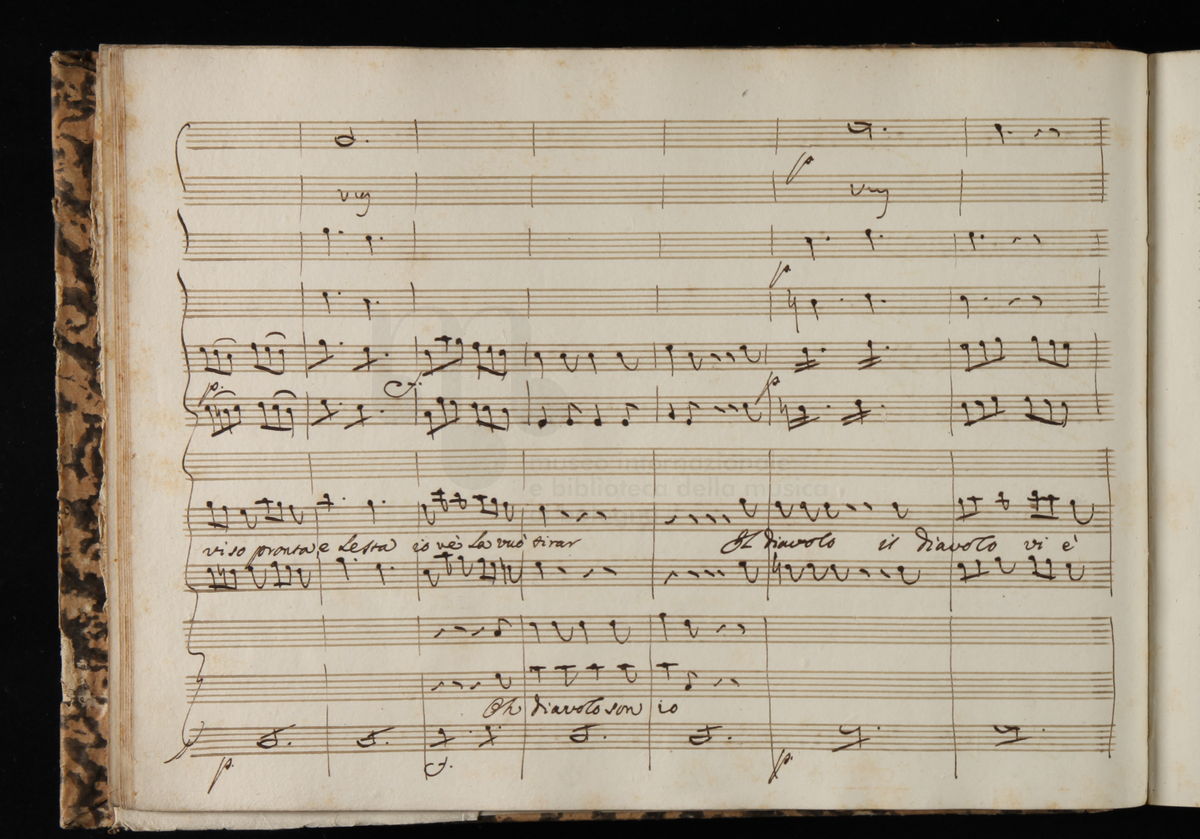 p.
unis
unis
p.
p.
f.
p.
museo internazionale
e biblioteca della musica
viso pronta e lesta io vè la vuò tirar Il diavolo il diavolo vi è
Oh diavolo son io
p. f. p.